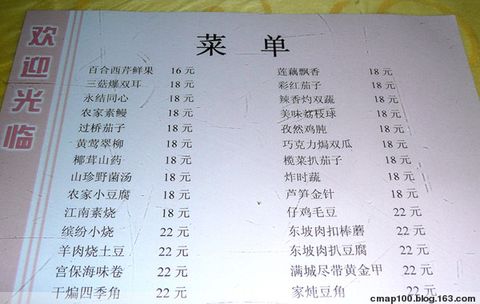 欢迎光临
菜 单
百合西芹鲜果 16 元
三菇爆双耳 18 元
永结同心 18 元
农家素鳗 18 元
过桥茄子 18 元
黄莺翠柳 18 元
椰茸山药 18 元
山珍野菌汤 18 元
农家小豆腐 18 元
江南素烧 18 元
缤纷小烧 22 元
羊肉烧土豆 22 元
宫保海味卷 22 元
干煸四季角 22 元
莲藕飘香 18 元
彩红茄子 18 元
辣香灼双蔬 18 元
美味荔枝球 18 元
孜然鸡肫 18 元
巧克力焗双瓜 18 元
榄菜扒茄子 18 元
炸时蔬 18 元
芦笋金针 18 元
仔鸡毛豆 22 元
东坡肉扣棒蘑 22 元
东坡肉扒豆腐 22 元
满城尽带黄金甲 22 元
家炖豆角 22 元
cmap100.blog.163.com